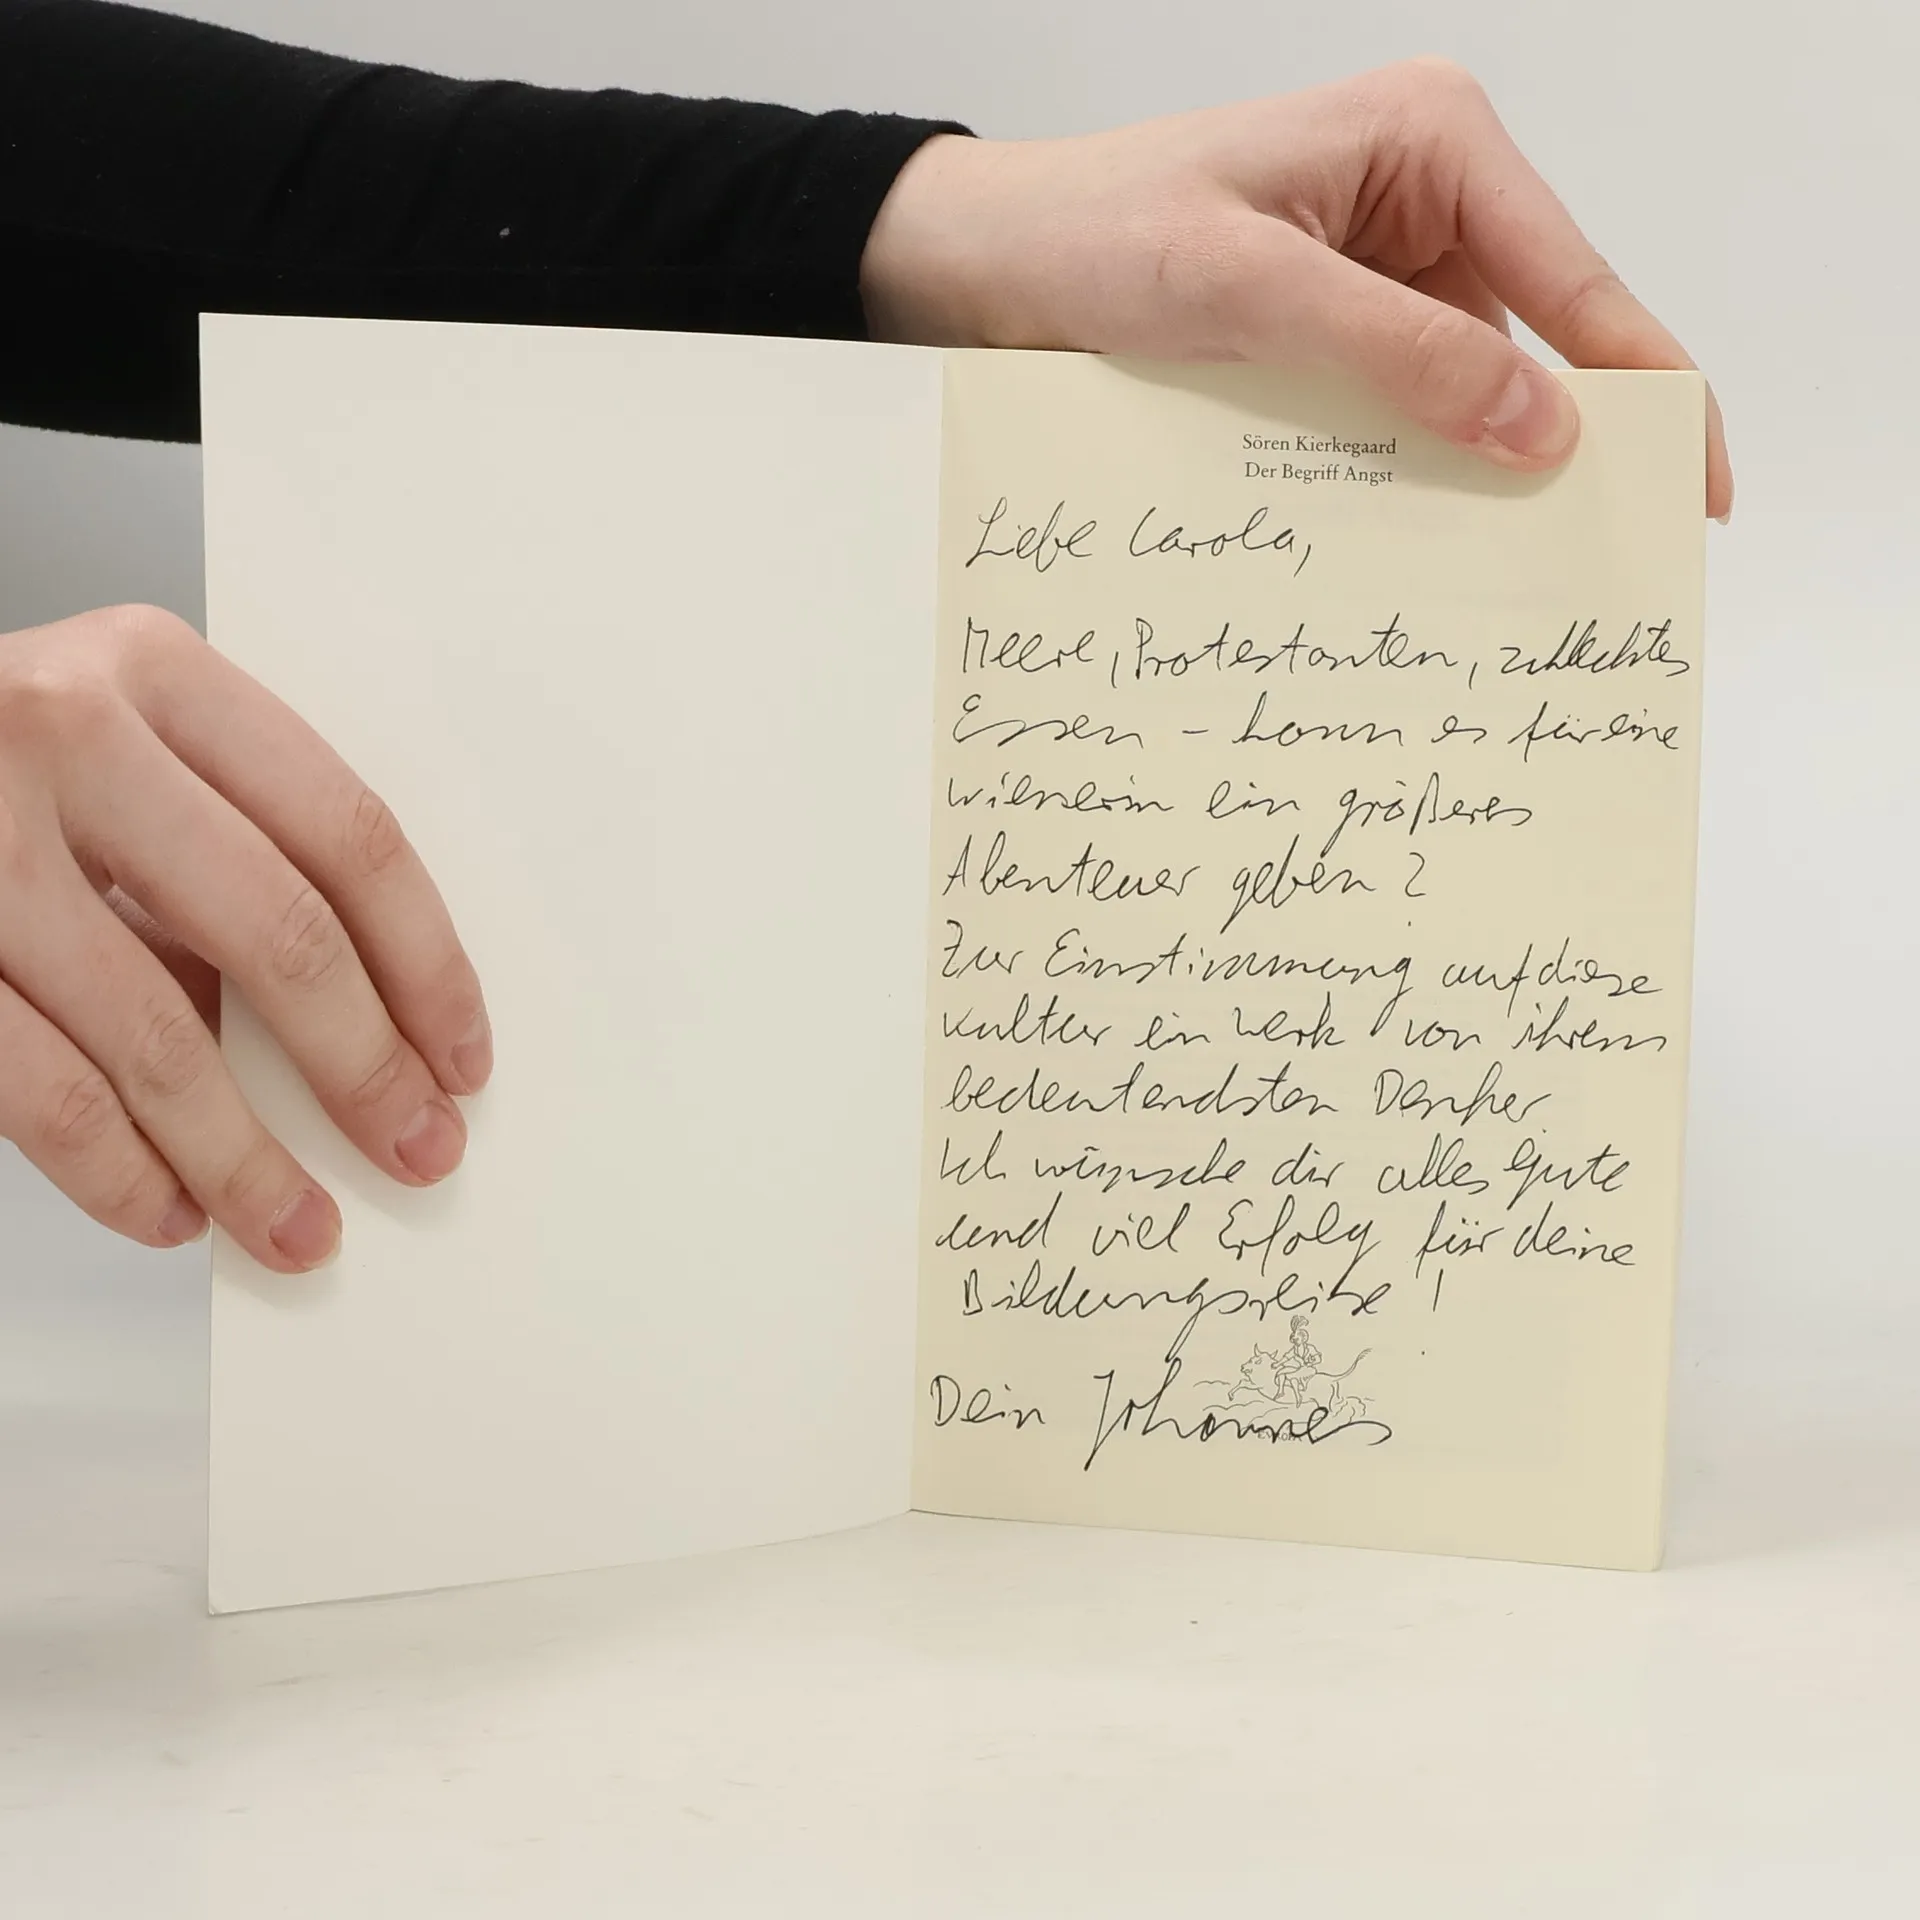 Sören Kierkegaard
Der Begriff Angst
Liebe Carola,
Meere, Protestanten, schlechtes
Essen – kann es für eine
Wienerin ein größeres
Abenteuer geben?
Zur Einstimmung auf diese
Kultur ein Werk von ihrem
bedeutendsten Denker.
Ich wünsche dir alles Gute
und viel Erfolg für deine
Bildungsreise!
Dein Johannes